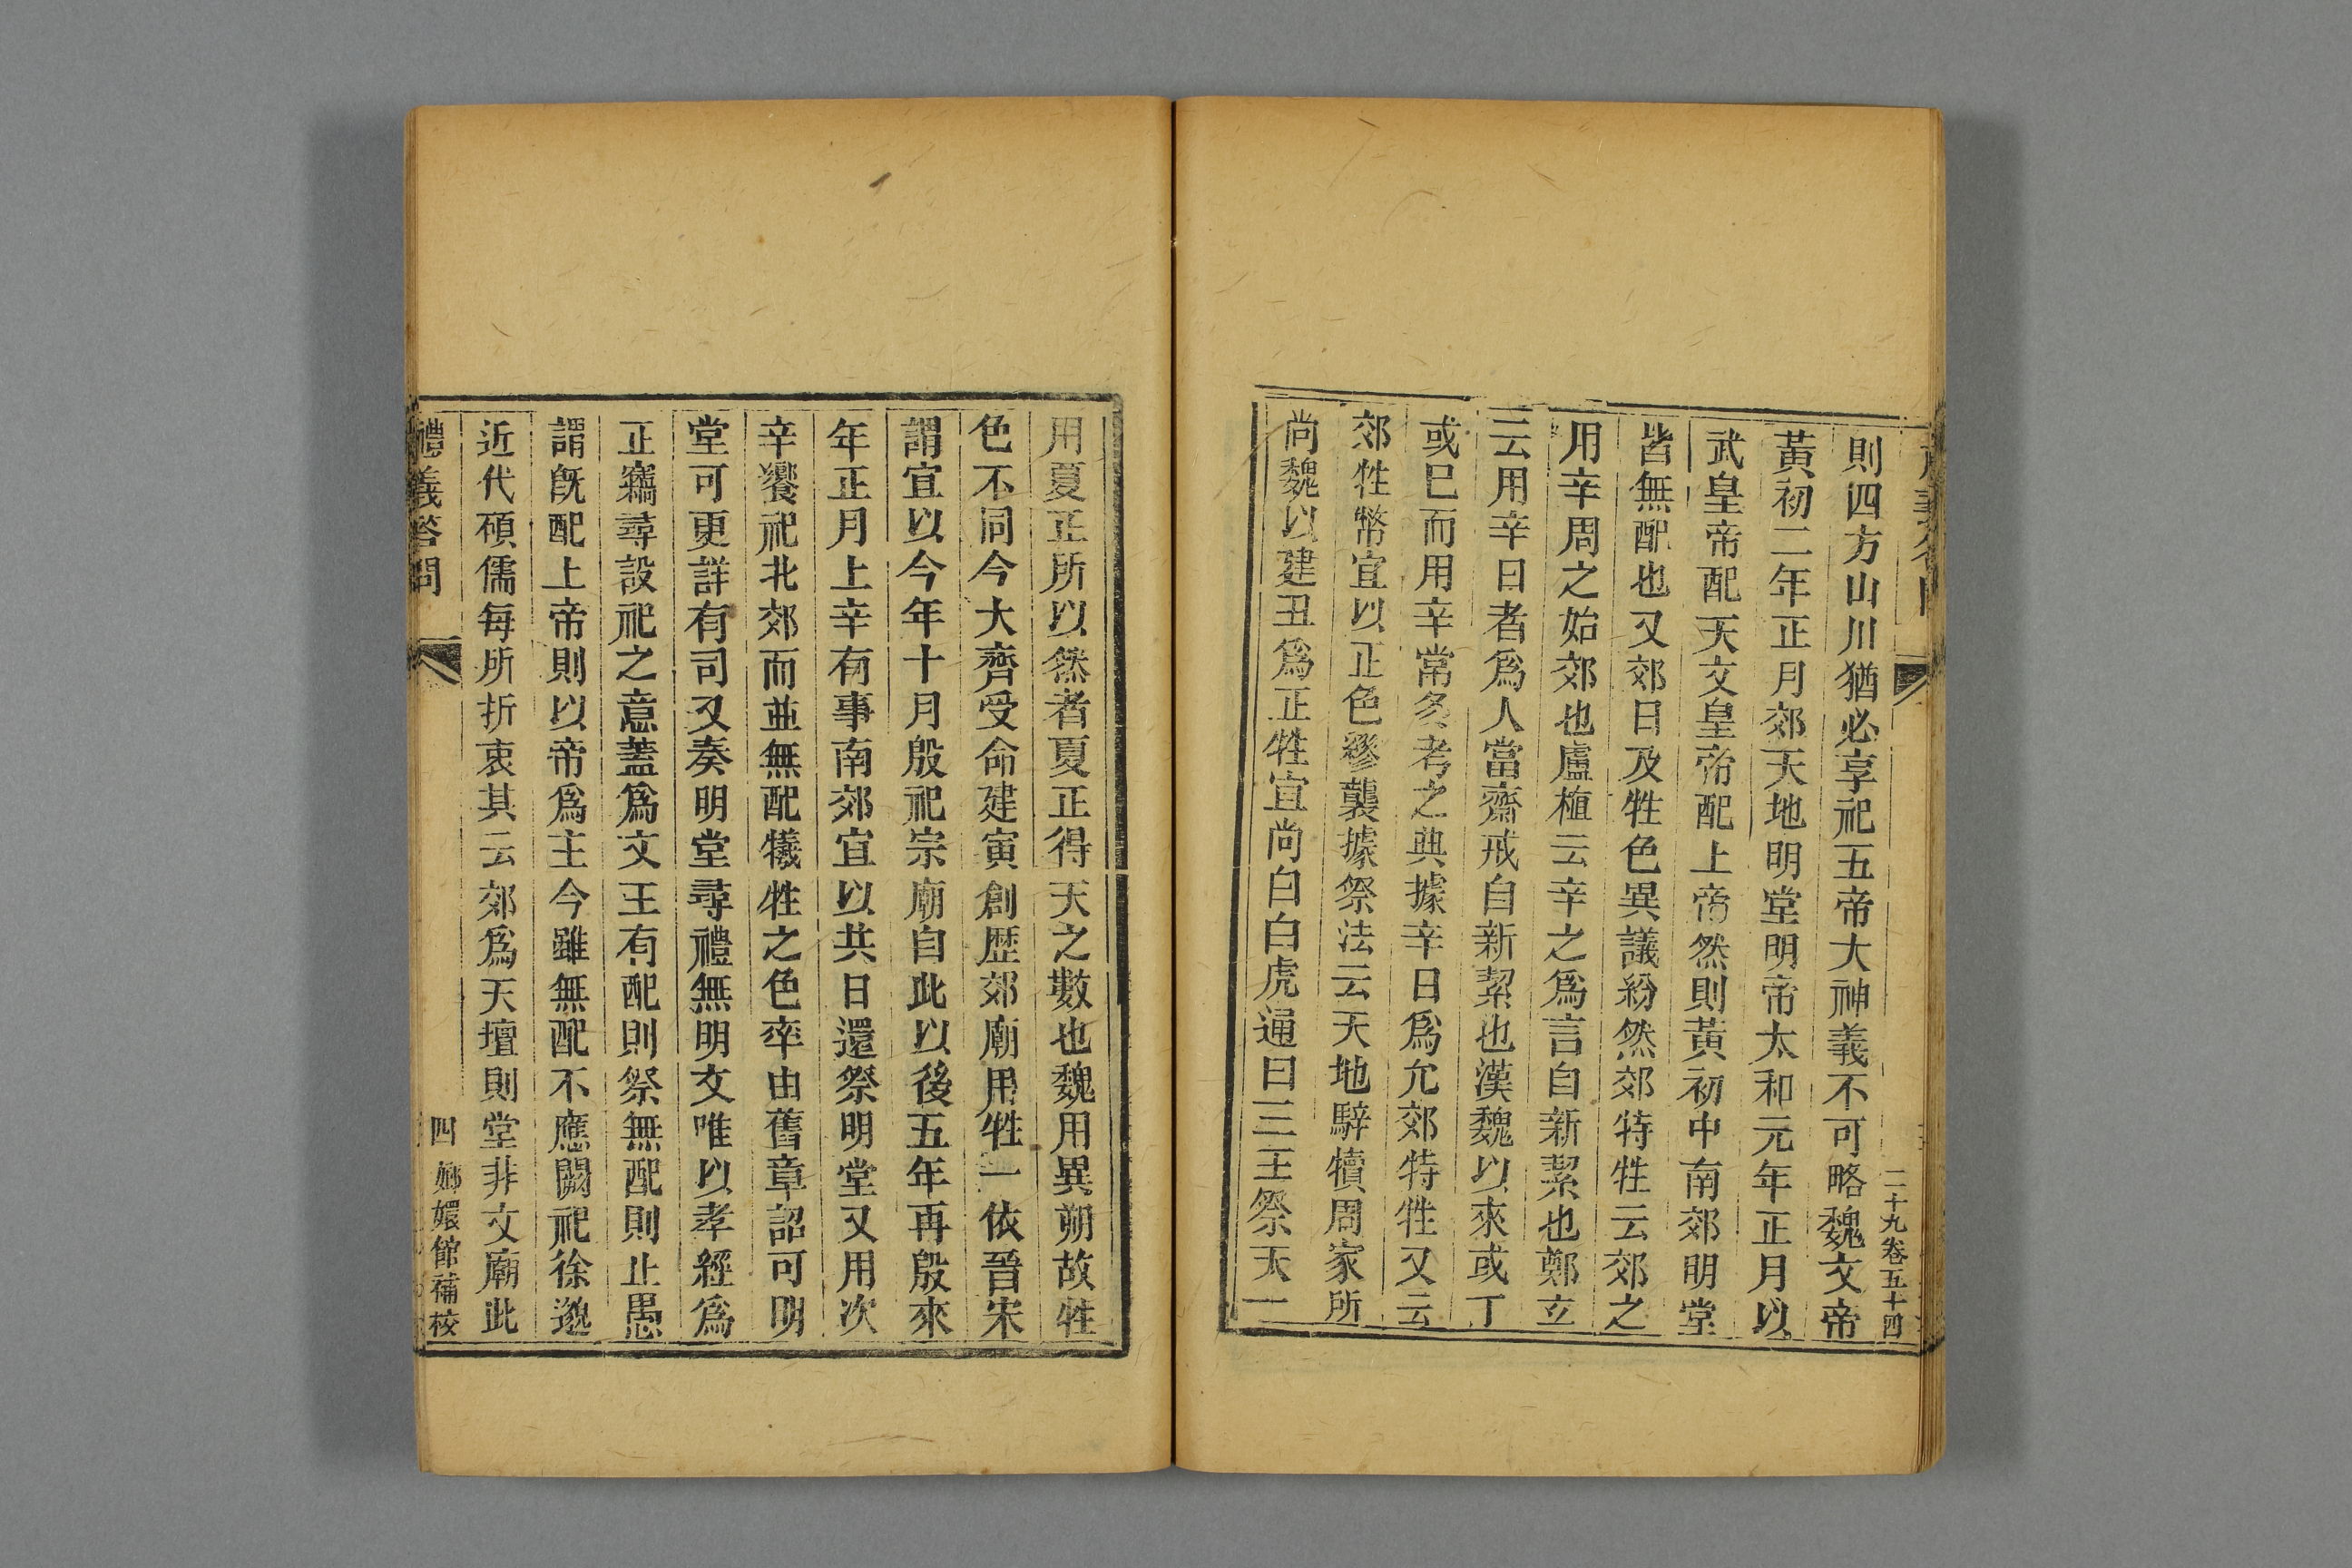 二十九卷五十四
則四方山川猶必享祀五帝大神義不可略魏文帝
黃初二年正月郊天地明堂明帝太和元年正月以
武皇帝配天文皇帝配上帝然則黃初中南郊明堂
皆無配也又郊日及牲色異議紛然郊特牲云郊之
用辛周之始郊也盧植云辛之為言自新絜也鄭玄
云用辛日者為人當齋戒自新絜也漢魏以來或丁
或巳而用辛常多考之典據辛日為允郊特牲又云
郊牲幣宜以正色繆襲據祭法云天地騂犢周家所
尚魏以建丑為正牲宜尚白白虎通曰三王祭天一
用夏正所以然者夏正得天之數也魏用異朔故牲
色不同今大齊受命建寅創歷郊廟用牲一依晉宋
謂宜以今年十月殷祀宗廟自此以後五年再殷來
年正月上辛有事南郊宜以共日還祭明堂又用次
辛饗祀北郊而並無配犧牲之色率由舊章詔可明
堂可更詳有司又奏明堂尋禮無明文唯以孝經為
正竊尋設祀之意蓋為文王有配則祭無配則止愚
謂既配上帝則以帝為主今雖無配不應闕祀徐邈
近代碩儒每所折衷其云郊為天壇則堂非文廟此
禮義荅問
四
嫏嬛館補校